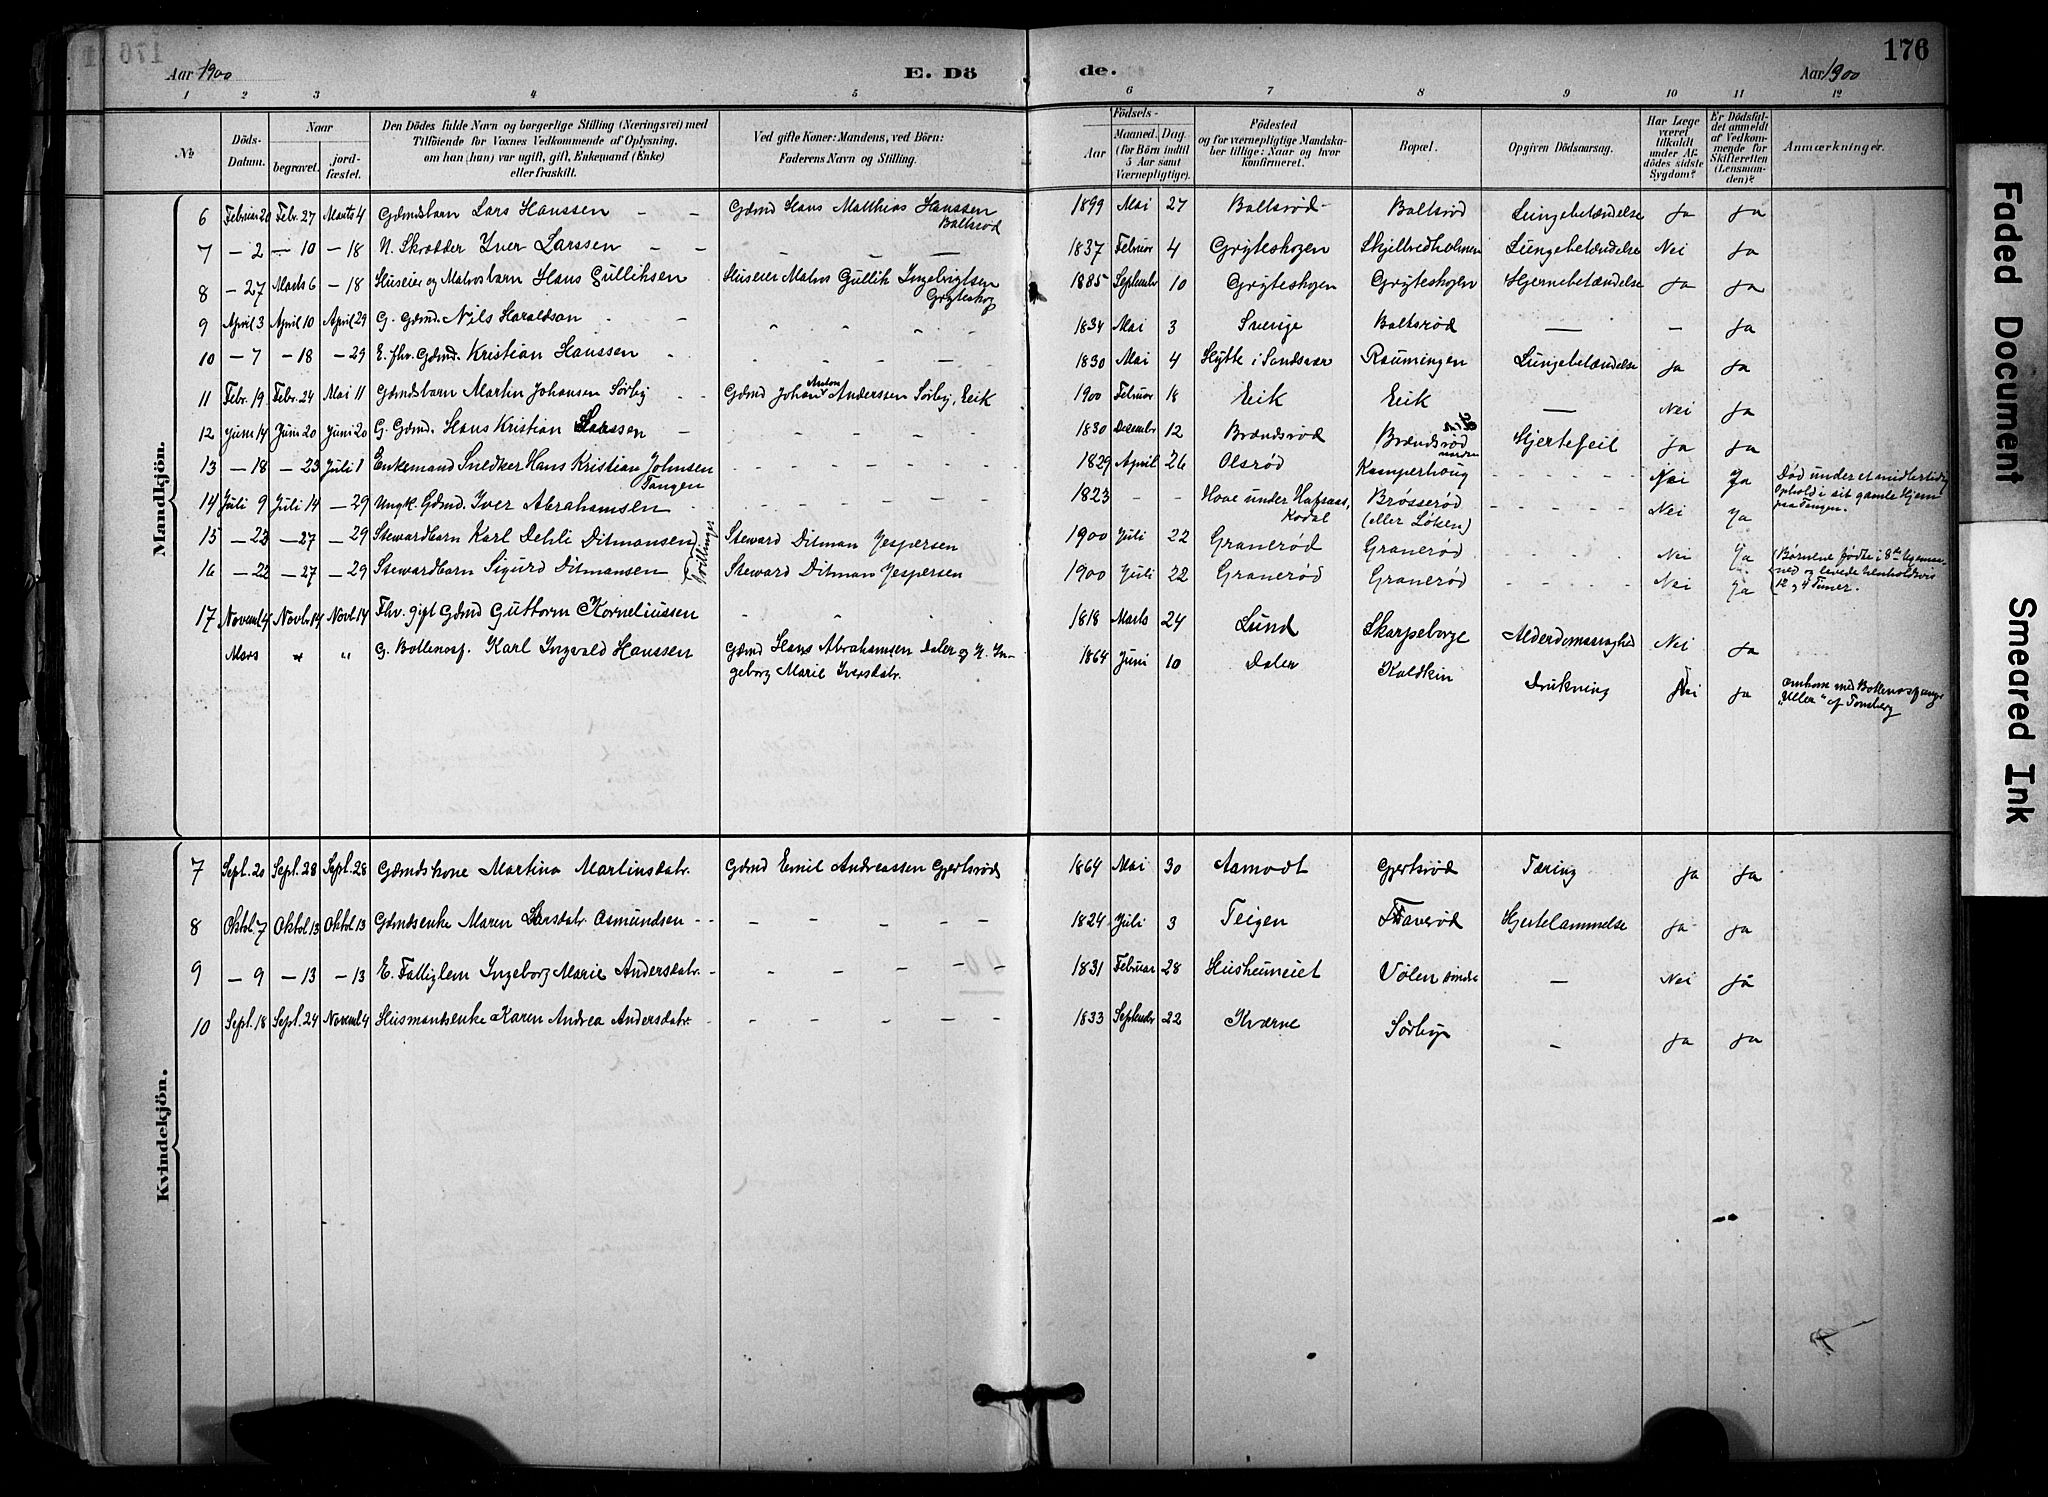 176
Aar 1900
E. Dö
de.
Aar 1900
1 2 3 4 5 6 7 8 9 10 11 12
№
Döds-
Datum.
Naar
begravet.
jord-
fæstet.
Den Dödes fulde Navn og borgerlige Stilling (Næringsvei) med
Tilföiende for Voxnes Vedkommende af Oplysning,
om han (hun) var ugift, gift, Enkemand (Enke)
eller fraskilt.
Ved gifte Koner: Mandens, ved Börn:
Faderens Navn og Stilling.
Födsels-
Aar
Maaned. Dag.
(for Börn indtil
5 Aar samt
Værnepligtige).
Födested
og for værnepligtige Mandska-
ber tillige: Naar og hvor
konfirmeret.
Bopæl.
Opgiven Dödsaarsag.
Har Læge
været
tilkaldt
under Af-
dödes sidste
Sygdom?
Er Dödsfal-
det anmeldt
af Vedkom-
mende for
Skifteretten
(Lensman-
den)?
Anmærkninger.
Mandkjön.
6 Februar 20 Febr. 27 Marts 4 Gdmdsbarn Lars Hanssen - - Gdmd Hans Matthias Hanssen Boltsrød 1899 Mai 27 Boltsrød Boltsrød Lungebetændelse Ja Ja
7 - 2 - 10 - 18 N. Skrædder Iver Larssen - - - - 1837 Februar 4 Gryteskogen Skjelbredholmen Lungebetændelse Nei Ja
8 - 27 Marts 6 - 18 Huseier og Matrosbarn Hans Gulliksen Huseier Matros Gullik Ingebrigtsen Gryteskog 1885 September 10 Gryteskogen Gryteskogen Hjernebetændelse Ja Ja
9 April 3 April 10 April 29 G. Gdmd. Nils Haraldson - - 1834 Mai 3 Sverige Boltsrød - - Ja
10 - 7 - 18 - 29 E. fhv. Gdmd. Kristian Hanssen - 1830 Mai 4 Hytte i Sandsvær Raumingen Lungebetændelse Ja Ja
11 Febr. 19 Febr. 24 Mai 11 Gdmdsbarn Martin Johansen Sørby - - Gdmd Johan Anton Anderssen Sørby, Eik 1900 Februar 18 Eik Eik - Nei Ja
12 Juni 14 Juni 20 Juni 20 G. Gdmd. Hans Kristian Larssen - 1830 Desember 12 Brændsrød Brændsrød Hjertefeil Ja Ja
13 - 18 - 23 Juli 1 Enkemand Snedker Hans Kristian Johnsen Tangen 1829 April 26 Olsrød Kamperhoug - - - - Nei Ja Død under et midlertidig Ophold i sit gamle Hjem paa Tangen.
14 Juli 9 Juli 14 - 29 Ungk. Gdmd. Iver Abrahamsen 1823 - - Hove under Hafsaas, Kodal Brøsserød (eller Løken) - - - - Nei Ja
15 - 22 - 27 - 29 Stewardbarn Karl Dehli Ditmansen Tvillinger Steward Ditman Jespersen 1900 Juli 22 Granerød Granerød - - - - Nei Ja (Børnene fødte i 8de
16 - 22 - 27 - 29 Stewardbarn Sigurd Ditmansen Steward Ditman Jespersen 1900 Juli 22 Granerød Granerød - - - - Nei Ja og levede henholdsvis 12 og 4 Timer.
17 Novemb. 4 Novbr. 14 Novbr. 14 Fhv. gift Gdmd Guttorm Korneliussen 1818 Marts 24 Lund Skarpeborge Alderdomssvaghed Nei Ja
Mars " " G. Bottenosf. Karl Ingvald Hanssen Gdmd Hans Abrahamsen Daler og H. Ingeborg Marie Iversdatr. 1864 Juni 10 Daler Koldkin Drukning Nei Ja omkom med Bottenosfanger "Uller" af Tønsberg
Kvindekjön.
7 Sept. 20 Sept. 28 Sept. 28 Gdmdskone Martina Martinsdatr. Gdmd Emil Andreassen Gjertsrød 1864 Mai 30 Aamodt Gjertsrød Tæring Ja Ja
8 Oktob. 7 Oktob. 13 Oktob. 13 Gdmdsenke Maren Larsdatr. Osmundsen - - - - - 1824 Juli 3 Teigen Haverød Hjertelammelse Ja Ja
9 - 9 - 13 - 13 E. Fattiglem Ingeborg Marie Andersdatr. - - - - - 1831 Februar 28 Vølen søndre - Nei Ja
10 Sept. 18 Sept. 24 Novemb. 4 Husmandsenke Karen Andrea Andersdatr. - - - - - 1833 September 22 Kværne Sørby - Ja Ja
Faded Document
Smeared Ink